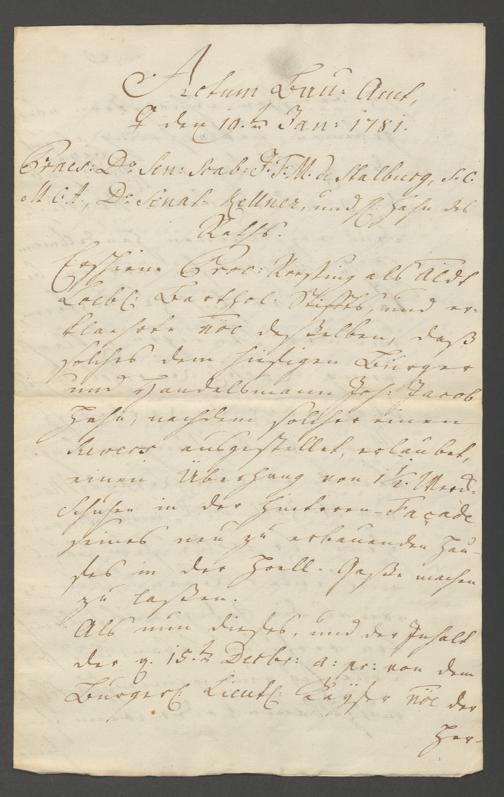 Actum Bau: Amt,
☿ den 10.ten Jan: 1781.
Praes: Dº Sen: Scab: J: F: M: de Stalburg, S. C.
M. C. A., Dº Senat: Kellner, und H Hahn des
Raths.
Erschiene Proc: als
Loebl: Barthol: Stiffts, und er-
klaehrte noe desselben, daß
solches dem hiesigen Burger
und Handelsmann Joh: Jacob
Hahn, nachdem solcher einen
Revers ausgestellet, erlaubet,
einen Überhang von 1½ Werck-
Schuhen in der hinteren-Façade
seines neu zu erbauenden Hau-
ses in der Höll-Gaße machen
zu laßen.
Als nun dieses, und der Inhalt
der q. 15.ten Decbr: a: pr: von dem
Burgerl: Lieut: Kayser noe der
Her-